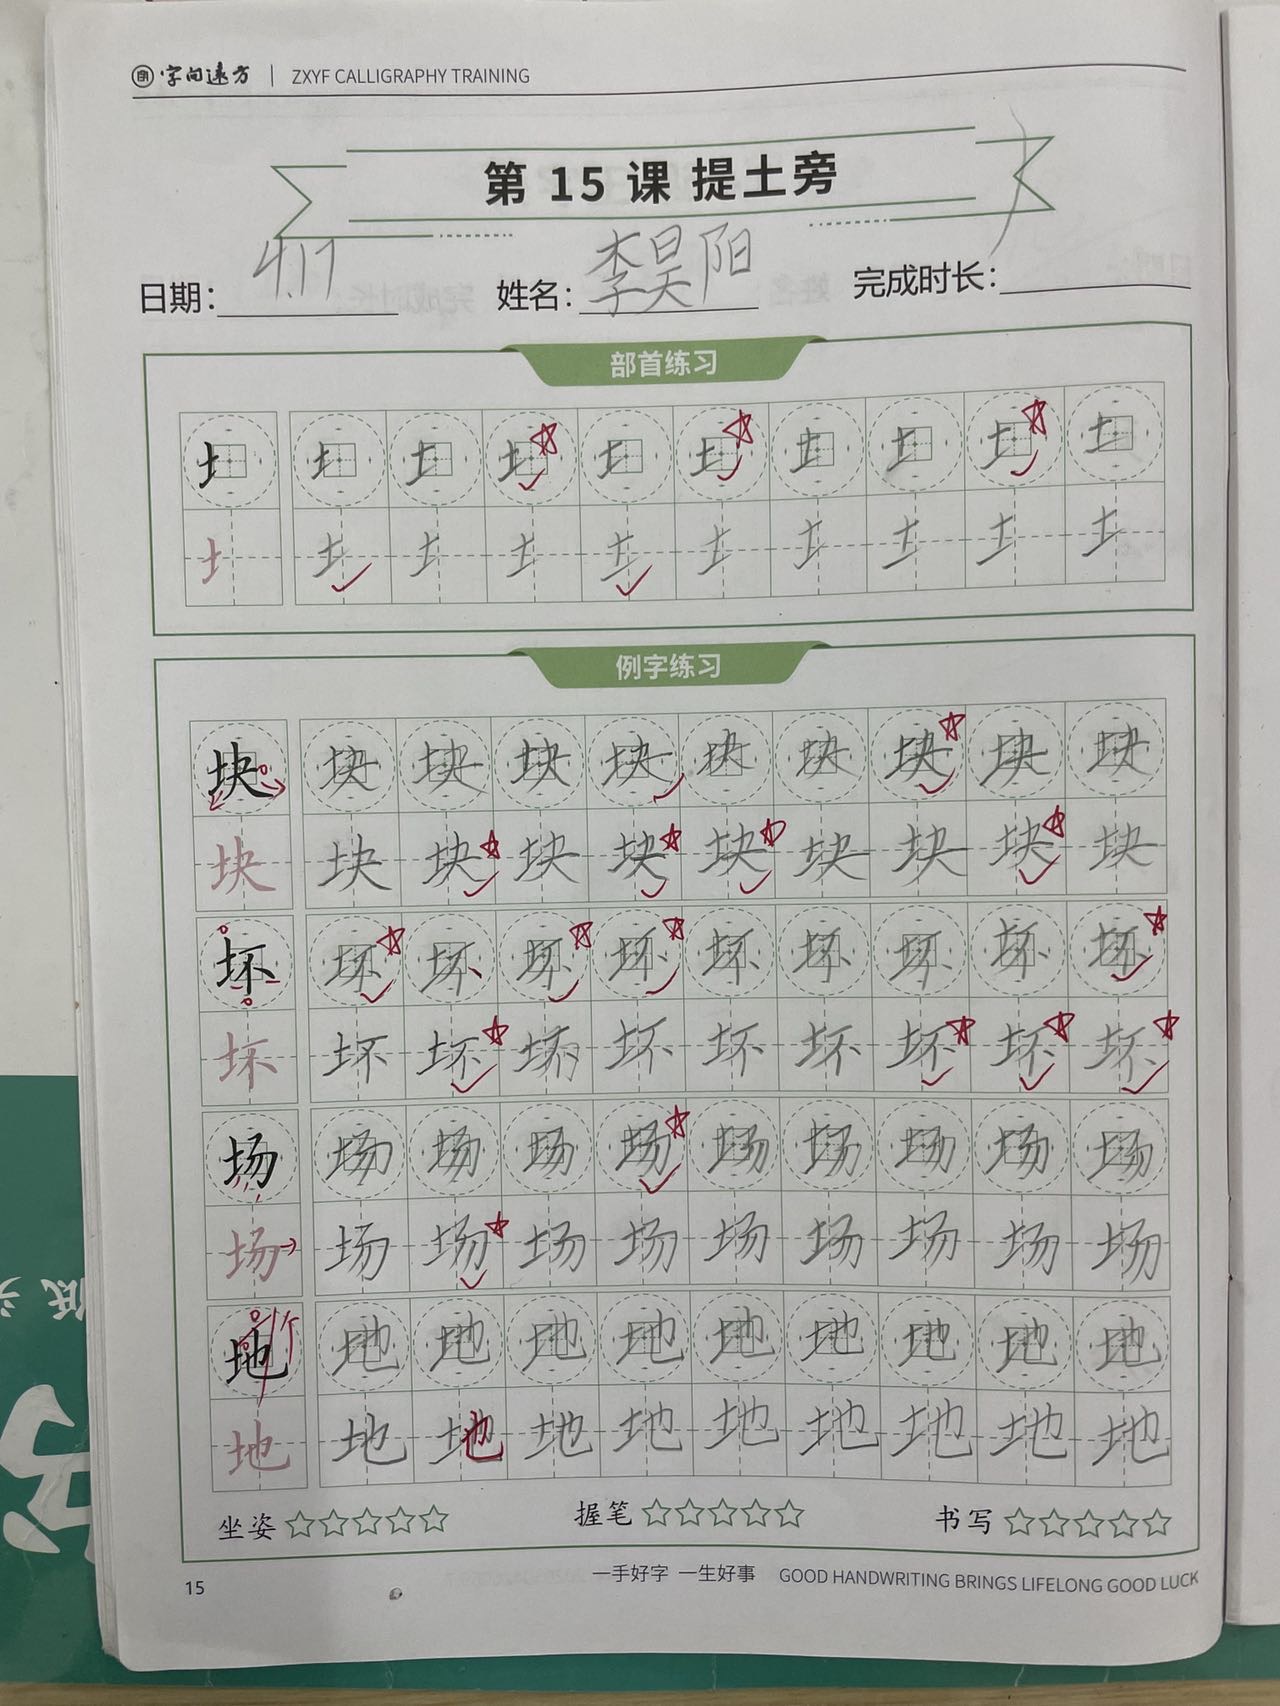 字向远方 | ZXYF CALLIGRAPHY TRAINING
第 15 课 提土旁
日期: 4.17 姓名: 李昊阳 完成时长:
部首练习
例字练习
块 块 块 块 块 块 块 块 块 块
块 块 块 块 块 块 块 块 块 块
坏 坏 坏 坏 坏 坏 坏 坏 坏 坏
坏 坏 坏 坏 坏 坏 坏 坏 坏
场 场 场 场 场 场 场 场 场 场
场 场 场 场 场 场 场 场 场 场
地 地 地 地 地 地 地 地 地 地
地 地 地 地 地 地 地 地 地 地
坐姿 握笔 书写
15 一手好字 一生好事 GOOD HANDWRITING BRINGS LIFELONG GOOD LUCK